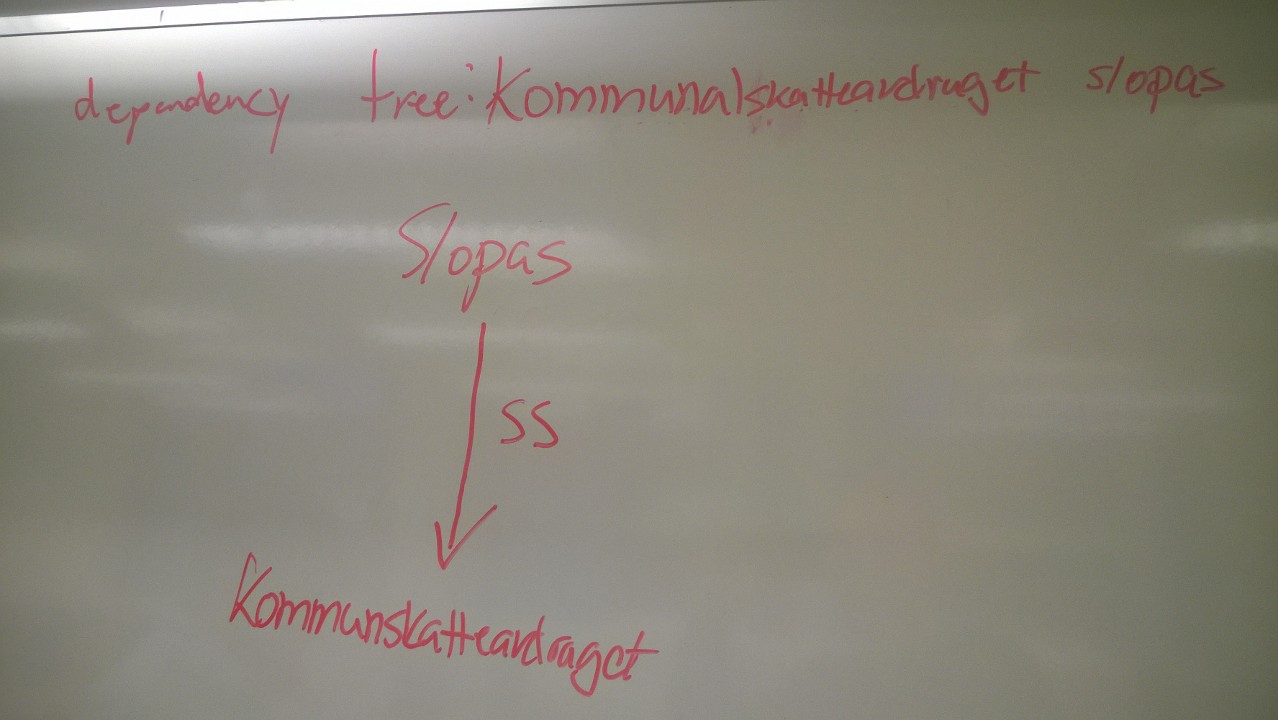 dependency tree: Kommunalskatteavdraget slopas
Slopas
SS
Kommunskatteavdraget